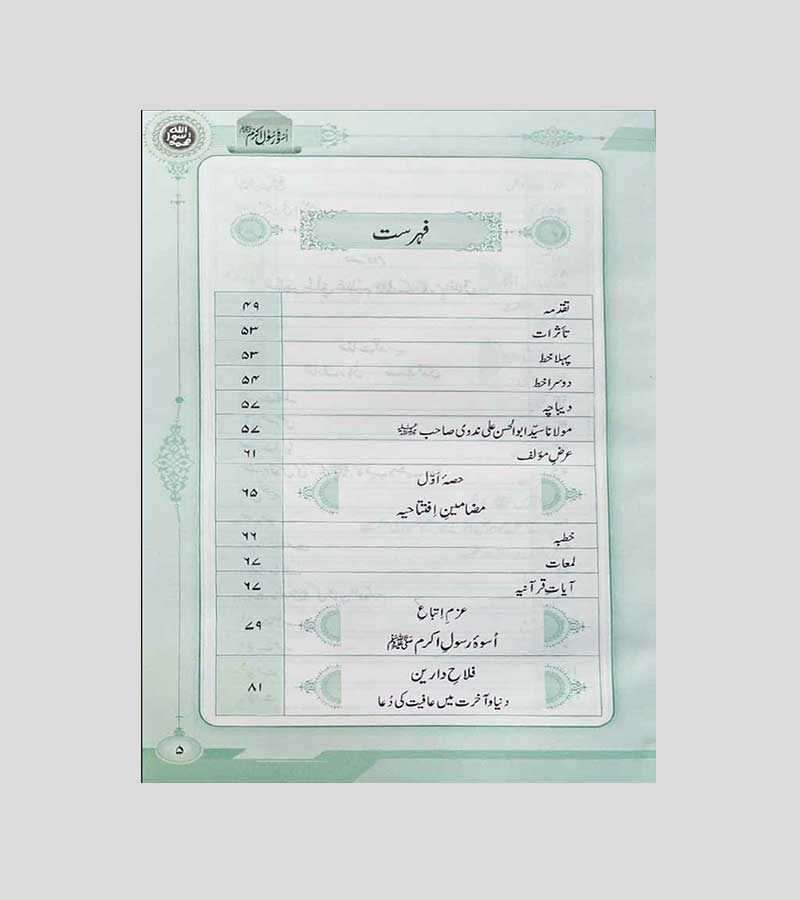 اللہ
رسول
محمد
اُسوۂ رسولِ اکرم ﷺ
فہرست
تقدمہ ۴۹
تأثرات ۵۳
پہلا خط ۵۳
دوسرا خط ۵۴
دیباچہ ۵۷
مولانا سیّد ابوالحسن علی ندوی صاحب ۵۷
عرضِ مؤلف ۶۱
حصۂ اَوّل
مضامینِ اِفتتاحیہ ۶۵
خطبہ ۶۶
لمعات ۶۷
آیاتِ قرآنیہ ۶۷
عزمِ اِتباع
اُسوۂ رسولِ اکرم ﷺ ۷۹
فلاحِ دارین
دنیا و آخرت میں عافیت کی دُعا ۸۱
۵